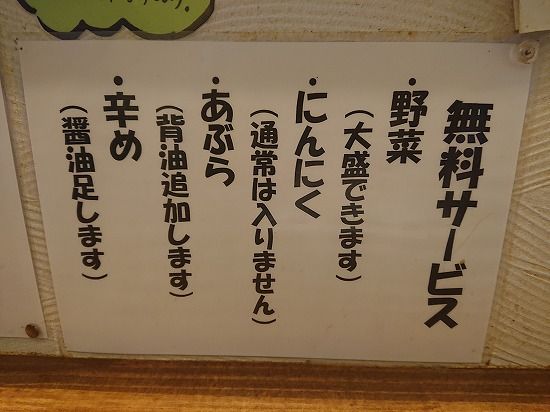 無料サービス
・野菜
（大盛できます）
・にんにく
（通常は入りません）
・あぶら
（背油追加します）
・辛め
（醤油足します）